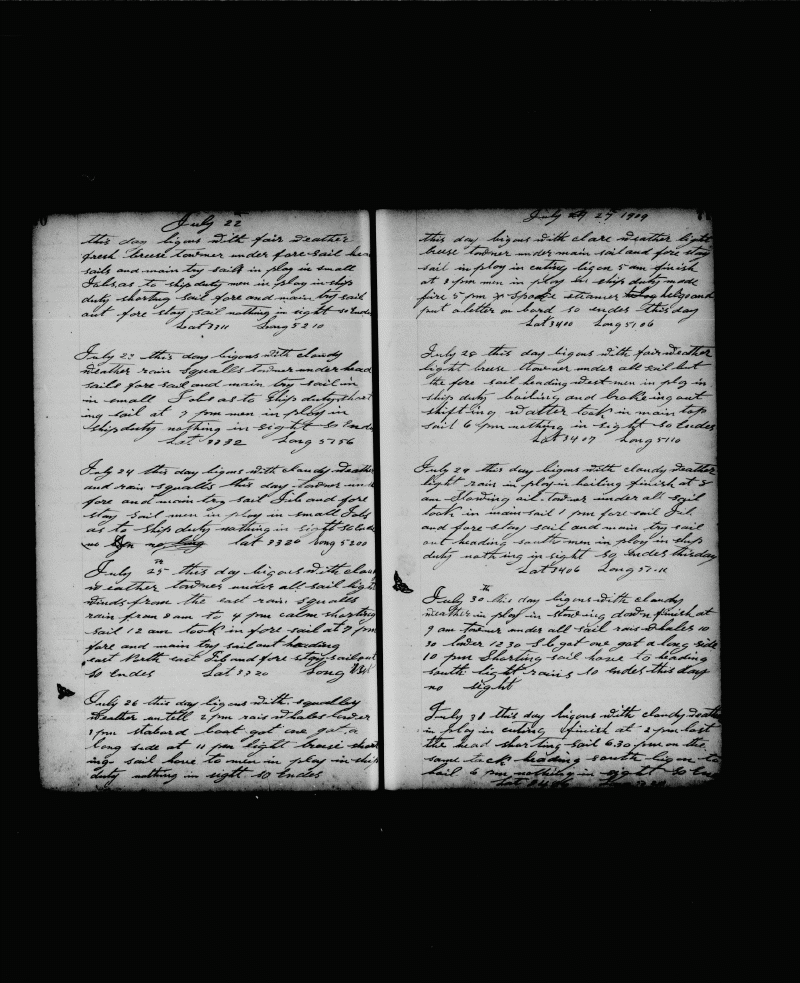 July 22
this day bigons with fair weather
fresh breuse towner under fore sail head
sails and main try sail in ploy in small
Jobs as to ship duty men in ploy in ship
duty shorting sail fore and main try sail
out fore stay sail nothing in sight so Ends
Lat 3311 Long 5210
July 23 this day bigons with cloudy
weather rain squalls towner under head
sails fore sail and main try sail in
in small Jobs as to ship duty short
ing sail at 7 pm men in ploy in
ship duty nothing in sight so Ends
Lat 3332 Long 5156
July 24 this day bigons with cloudy weather
and rain squalls this day towner
fore and main try sail Jib and fore
stay sail men in ploy in small Jobs
as to ship duty nothing in sight so Ends
no lat 3320 Long 5200
July 25 this day bigons with cloudy
weather towner under all sail light
winds from the east rain squalls
rain from 8 am to 4 pm calm shorting
sail 12 am took in fore sail at 7 pm
fore and main try sail out heading
east North east Jib and fore stay sail out
so Endes Lat 3320 Long
July 26 this day bigons with squalley
weather untill 2 pm rais whales lower
3 pm stabord boat got one got a
long side at 11 pm light breuse short
ing sail hove to men in ploy in ship
duty nothing in sight so Endes
July 27 1909
this day bigons with clare weather light
breuse towner under main sail and fore stay
sail in ploy in cutting bigon 5 am finish
at 3 pm men in ploy in ship duty made
fire 5 pm Spoke steamer and
put a letter on bord so endes this day
Lat 3400 Long 5106
July 28 this day bigons with fair weather
light breuse towner under all sail but
the fore sail heading west men in ploy in
ship duty boiling and brokeing out
shifting watter took in main top
sail 6 pm nothing in sight so Endes
Lat 3407 Long 5110
July 29 this day bigons with cloudy weather
light rain in ploy in boiling finish at 8
am Stowing oil towner under all sail
took in main sail 1 pm fore sail Jib
and fore stay sail and main try sail
out heading south men in ploy in ship
duty nothing in sight so Endes this day
Lat 3406 Long 51-11
July 30th this day bigons with cloudy
weather in ploy in stowing down finish at
9 am towner under all sail rais whales 10
30 lower 12 30 S.b. got one got a long side
10 pm Shorting sail hove to heading
south light rains so endes this day
no sight
July 31 this day bigons with cloudy weather
in ploy in cuting finish at 2 pm lost
the head shorting sail 6 30 pm on the
same tack heading south bigon to
boil 6 pm nothing in sight so En